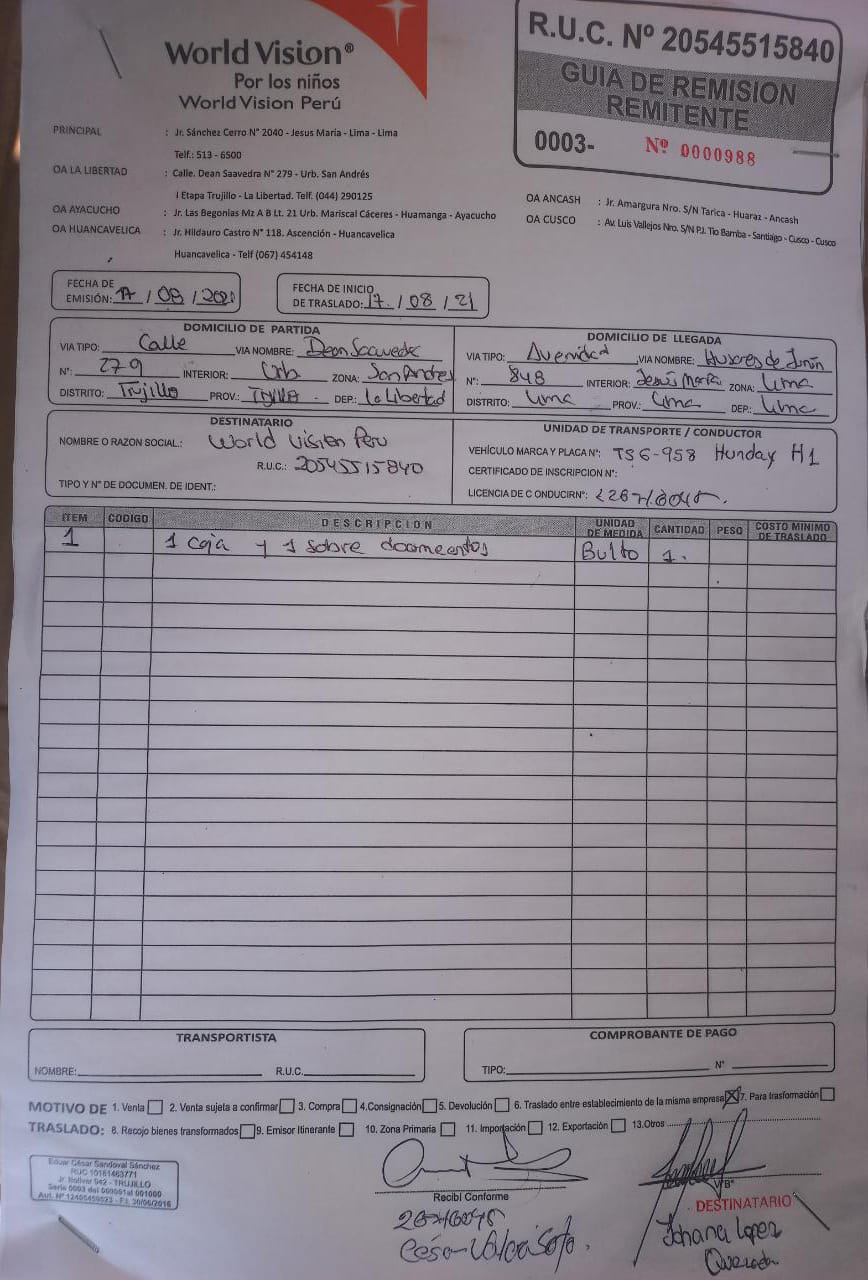 World Vision®
Por los niños
World Vision Perú
R.U.C. Nº 20545515840
GUIA DE REMISION
REMITENTE
0003- Nº 0000988
PRINCIPAL : Jr. Sánchez Cerro N° 2040 - Jesus María - Lima - Lima
Telf.: 513 - 6500
OA LA LIBERTAD : Calle. Dean Saavedra N° 279 - Urb. San Andrés
I Etapa Trujillo - La Libertad. Telf. (044) 290125
OA AYACUCHO : Jr. Las Begonias Mz A B Lt. 21 Urb. Mariscal Cáceres - Huamanga - Ayacucho
OA HUANCAVELICA : Jr. Hildauro Castro N° 118. Ascención - Huancavelica
Huancavelica - Telf (067) 454148
OA ANCASH : Jr. Amargura Nro. S/N Tarica - Huaraz - Ancash
OA CUSCO : Av. Luis Vallejos Nro. S/N P.J. Tio Bamba - Santiago - Cusco - Cusco
FECHA DE
EMISIÓN: 17 / 08 / 2021
FECHA DE INICIO
DE TRASLADO: 17 / 08 / 21
DOMICILIO DE PARTIDA
VIA TIPO: Calle VIA NOMBRE: Dean Saavedra
N°: 279 INTERIOR: Urb ZONA: San Andres
DISTRITO: Trujillo PROV.: Trujillo DEP.: La Libertad
DOMICILIO DE LLEGADA
VIA TIPO: Avenida VIA NOMBRE: Husares de Junín
N°: 848 INTERIOR: Jesús María ZONA: Lima
DISTRITO: Lima PROV.: Lima DEP.: Lima
DESTINATARIO
NOMBRE O RAZON SOCIAL.: World Vision Peru
R.U.C.: 20545515840
TIPO Y N° DE DOCUMEN. DE IDENT.:
UNIDAD DE TRANSPORTE / CONDUCTOR
VEHÍCULO MARCA Y PLACA N°: T56-958 Hunday H1
CERTIFICADO DE INSCRIPCION N°:
LICENCIA DE CONDUCIR N°:
ITEM CODIGO DESCRIPCION UNIDAD DE MEDIDA CANTIDAD PESO COSTO MINIMO DE TRASLADO
1 1 caja y 1 sobre documentos Bulto 1.
TRANSPORTISTA
NOMBRE: R.U.C.
COMPROBANTE DE PAGO
TIPO: N°
MOTIVO DE 1. Venta 2. Venta sujeta a confirmar 3. Compra 4.Consignación 5. Devolución 6. Traslado entre establecimiento de la misma empresa X 7. Para trasformación
TRASLADO: 8. Recojo bienes transformados 9. Emisor Itinerante 10. Zona Primaria 11. Importación 12. Exportación 13.Otros
Eduar César Sandoval Sánchez
RUC 10181463771
Jr. Bolívar 942 - TRUJILLO
Serie 0003 del 000501 al 001000
Recibí Conforme
VºBº
DESTINATARIO
Johana Lopez
Quezada